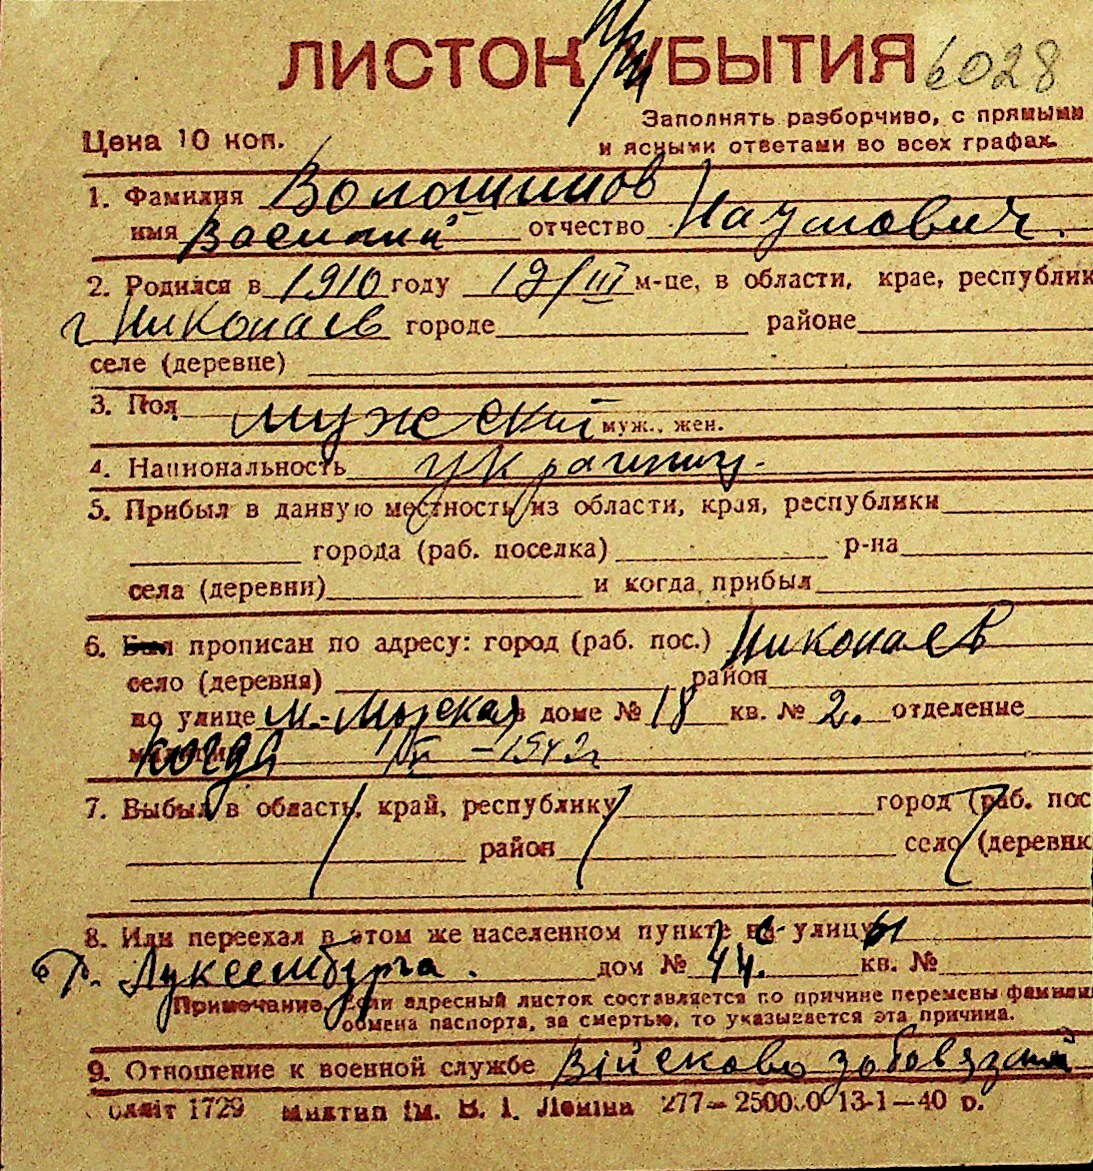 ЛИСТОК УБЫТИЯ 6028
Заполнять разборчиво, с прямыми
Цена 10 коп. и ясными ответами во всех графах.
1. Фамилия Волошинов
имя Василий отчество Наумович.
2. Родился в 1910 году 12/III м-це, в области, крае, республик
г Николаев городе районе
селе (деревне)
3. Пол мужской муж., жен.
4. Национальность украинец
5. Прибыл в данную местность из области, края, республики
города (раб. поселка) р-на
села (деревни) и когда прибыл
6. Был прописан по адресу: город (раб. пос.) Николаев
село (деревня) район
по улице М.-Морская в доме № 18 кв. № 2. отделение
когда 1942г
7. Выбыл в область, край, республику город (раб. пос
район село (деревня
8. Или переехал в этом же населенном пункте с улицы
Р. Люксембурга. дом № 44. кв. №
Примечание. Если адресный листок составляется по причине перемены фамилии
обмена паспорта, за смертью, то указывается эта причина.
9. Отношение к военной службе Військово зобовязаний
1729 Миктип ім. В. І. Леніна 277—250000 13-1—40 р.